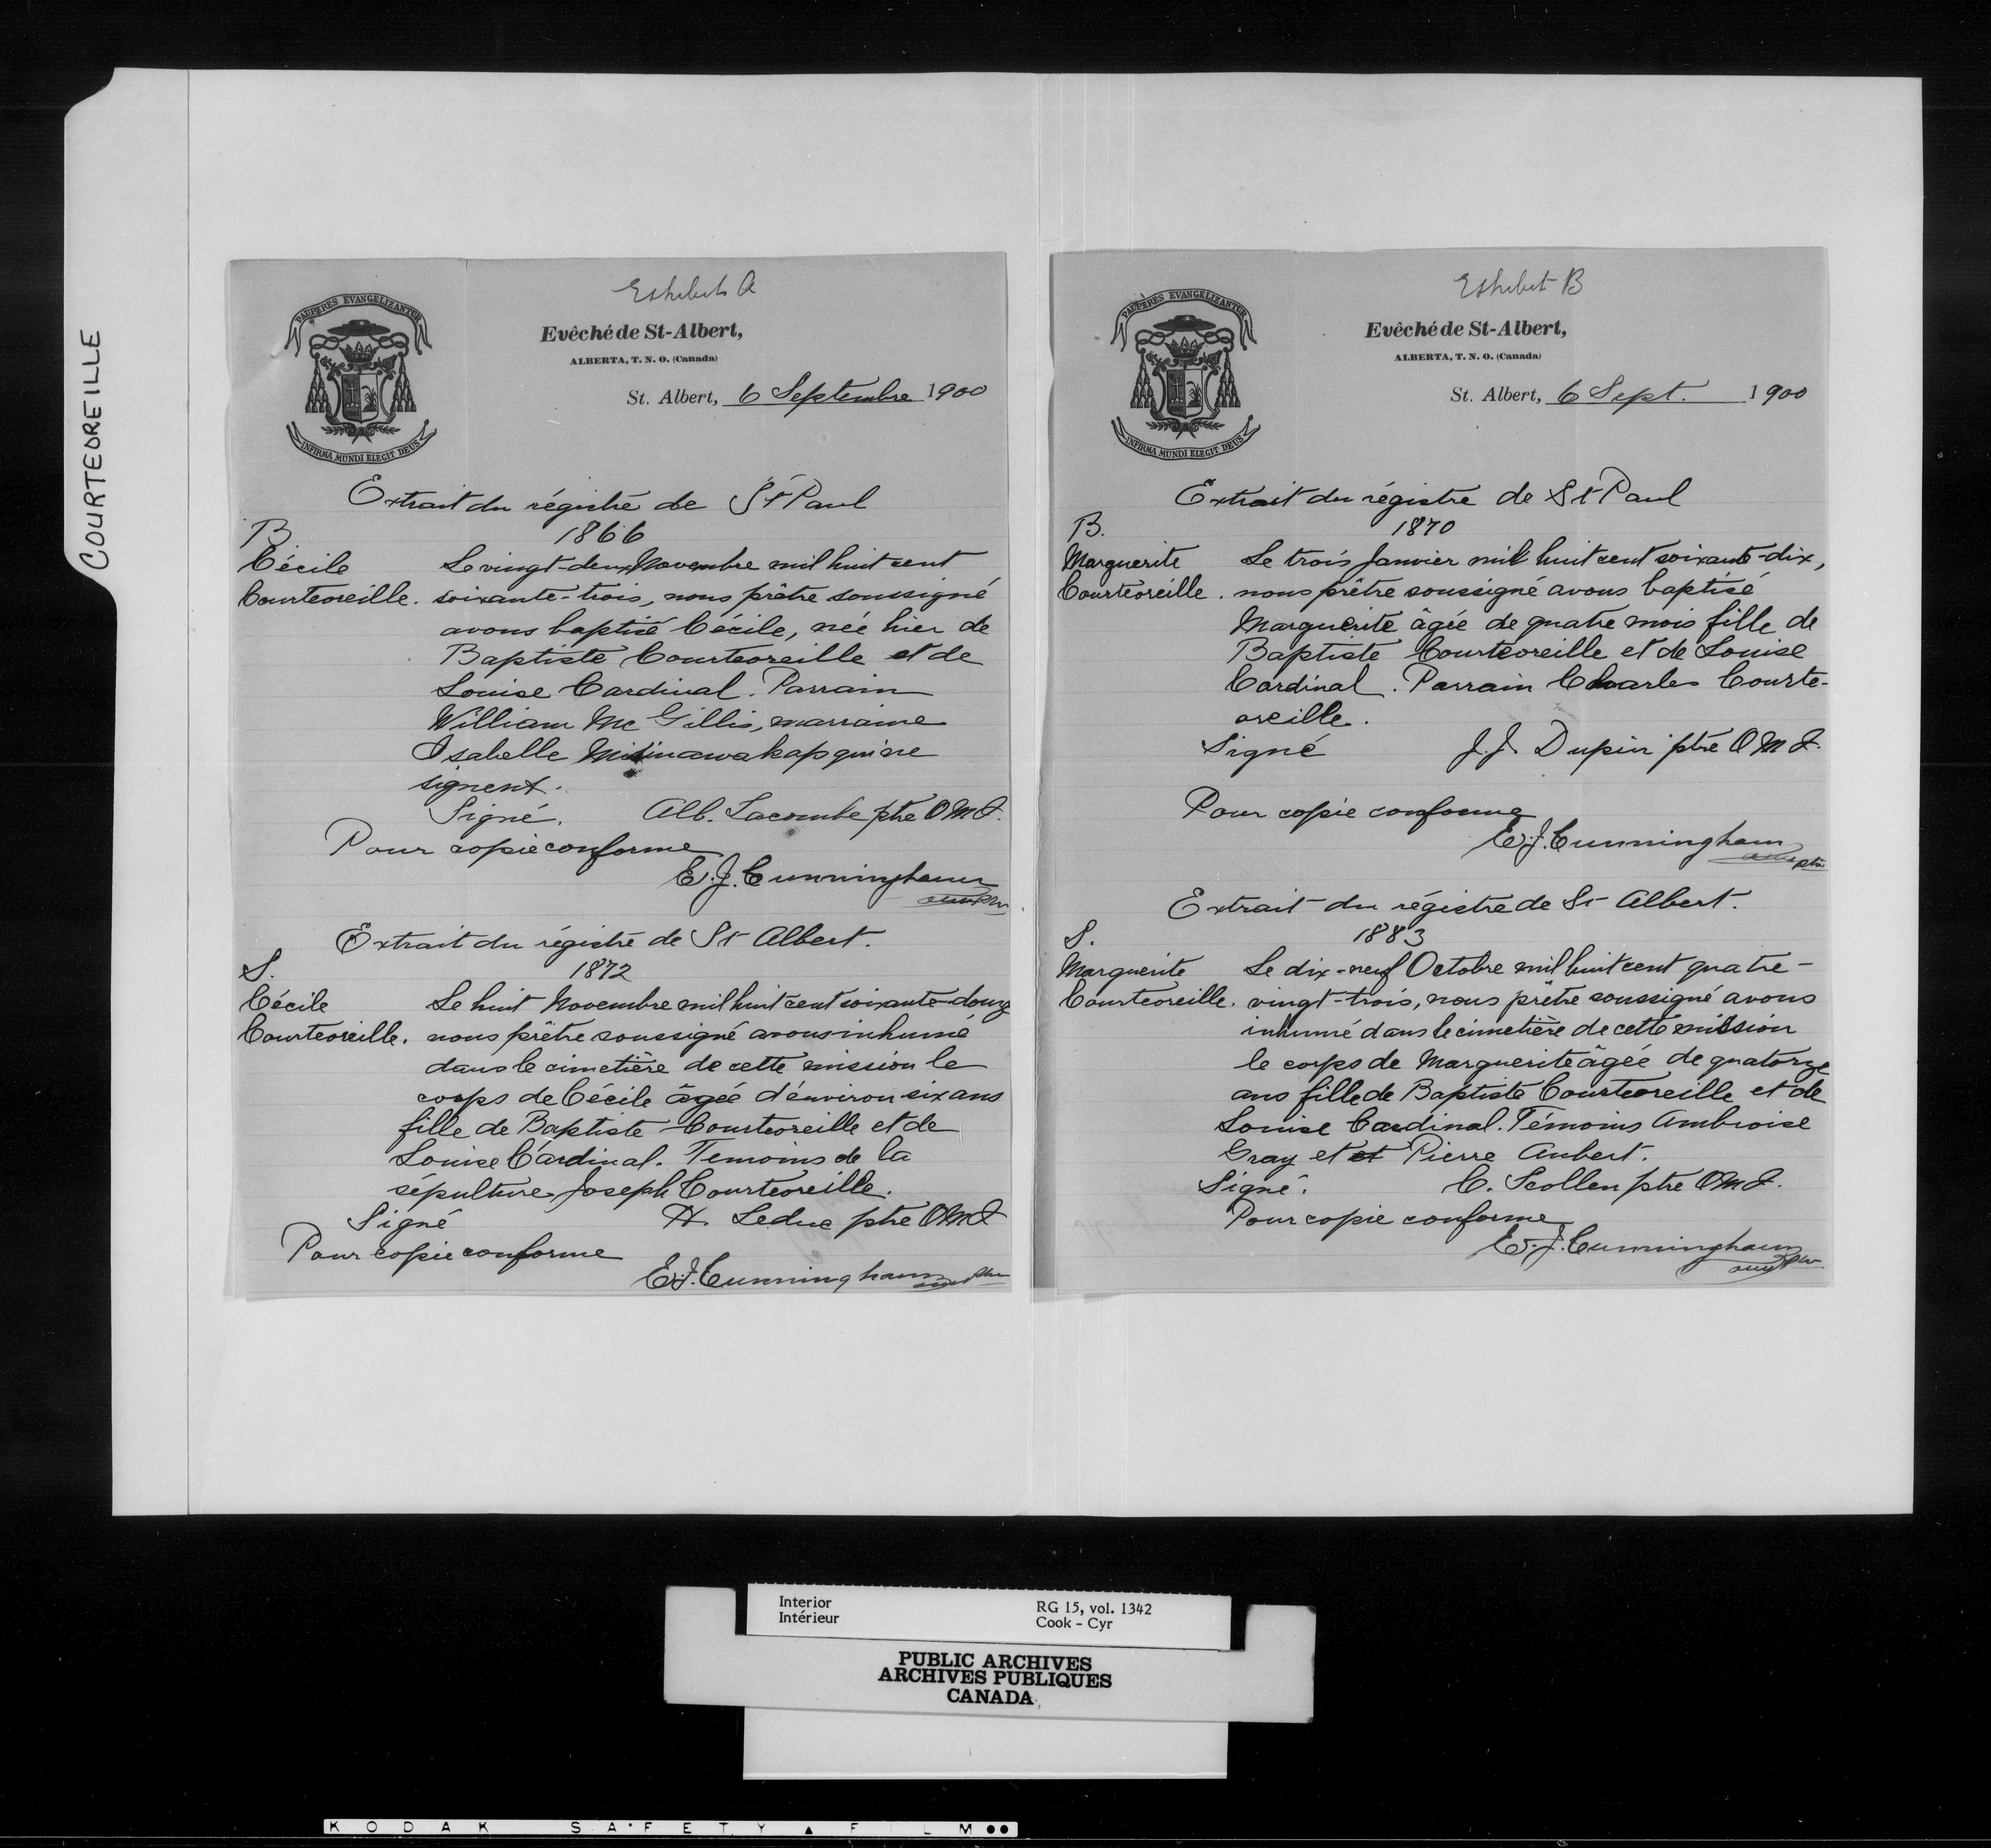 COURTEOREILLE
Exhibit A
PAUPERES EVANGELIZANTUR
Evêché de St-Albert,
ALBERTA, T. N. O. (Canada)
St. Albert, 6 Septembre 1900
INFIRMA MUNDI ELEGIT DEUS
Extrait du régistre de St Paul
B. 1866
Cécile Le vingt-deux Novembre mil huit cent
Courteoreille. soixante-trois, nous prêtre soussigné
avons baptisé Cécile, née hier de
Baptiste Courteoreille et de
Louise Cardinal. Parrain
William McGillis, marraine
Isabelle qui ne
signent.
Signé. Alb. Lacombe ptre O.M.I.
Pour copie conforme
E.J. Cunningham
Extrait du régistre de St Albert.
S. 1872
Cécile Le huit Novembre mil huit cent soixante-douze
Courteoreille. nous prêtre soussigné avons inhumé
dans le cimetière de cette mission le
corps de Cécile âgée d'environ six ans
fille de Baptiste Courteoreille et de
Louise Cardinal. Temoins de la
sépulture Joseph Courteoreille.
Signé H. Leduc ptre OMI
Pour copie conforme
E.J. Cunningham
Exhibit B
PAUPERES EVANGELIZANTUR
Evêché de St-Albert,
ALBERTA, T. N. O. (Canada)
St. Albert, 6 Sept. 1900
INFIRMA MUNDI ELEGIT DEUS
Extrait du régistre de St Paul
B. 1870
Marguerite Le trois Janvier mil huit cent soixante-dix,
Courteoreille. nous prêtre soussigné avons baptisé
Marguerite âgée de quatre mois fille de
Baptiste Courteoreille et de Louise
Cardinal. Parrain Charles Courte-
oreille.
Signé J.J. Dupin ptre O M I.
Pour copie conforme
E.J. Cunningham
ptre
Extrait du régistre de St Albert.
S. 1883
Marguerite Le dix-neuf Octobre mil huit cent quatre-
Courteoreille. vingt-trois, nous prêtre soussigné avons
inhumé dans le cimetière de cette mission
le corps de Marguerite âgée de quatorze
ans fille de Baptiste Courteoreille et de
Louise Cardinal. Témoins Ambroise
Gray et et Pierre Aubert.
Signé. C. Scollen ptre OMI.
Pour copie conforme
E.J. Cunningham
Interior RG 15, vol. 1342
Intérieur Cook - Cyr
PUBLIC ARCHIVES
ARCHIVES PUBLIQUES
CANADA
KODAK SAFETY FILM